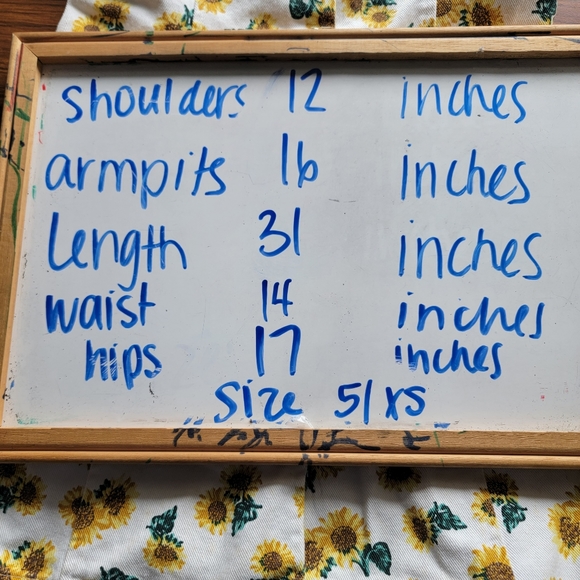 shoulders 12 inches
armpits 16 inches
Length 31 inches
waist 14 inches
hips 17 inches
Size 5/xs